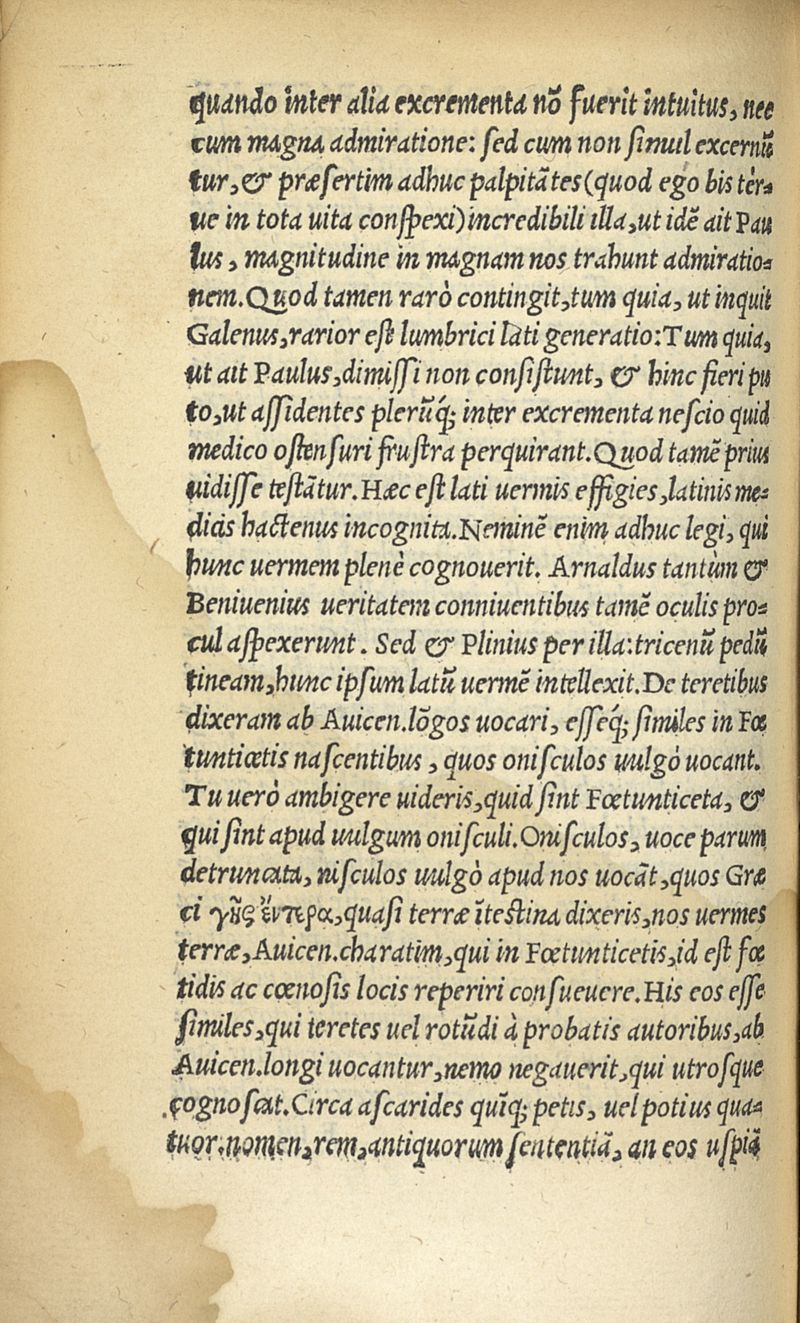 quando inter alia excrementa nõ fuerit intuitus, nec
cum magna admiratione: sed cum non simul excernũ
tur, & præsertim adhuc palpitãtes (quod ego bis tér-
ue in tota uita conspexi) incredibili illa, ut idẽ ait Pau
lus, magnitudine in magnam nos trahunt admiratio-
nem. Quod tamen rarò contingit, tum quia, ut inquit
Galenus, rarior est lumbrici lati generatio: Tum quia,
ut ait Paulus, dimissi non consistunt, & hinc fieri pu
to, ut assidentes plerũq; inter excrementa nescio quid
medico ostensuri frustra perquirant. Quod tamẽ prius
uidisse testãtur. Hæc est lati uermis effigies, latinis me-
dicis hactenus incognita. Neminẽ enim adhuc legi, qui
hunc uermem plenè cognouerit. Arnaldus tantùm &
Beniuenius ueritatem conniuentibus tamẽ oculis pro-
cul aspexerunt. Sed & Plinius per illa: tricenũ pedũ
tineam, hunc ipsum latũ uermẽ intellexit. De teretibus
dixeram ab Auicen. lõgos uocari, esseq́; similes in Fœ
tunticetis nascentibus, quos onisculos uulgò uocant.
Tu uerò ambigere uideris, quid sint Fœtunticeta, &
qui sint apud uulgum onisculi. Onisculos, uoce parum
detruncata, nisculos uulgò apud nos uocãt, quos Græ
ci γῆς ἔντερα, quasi terræ ĩtestina dixeris, nos uermes
terræ, Auicen. charatim, qui in Fœtunticetis, id est fœ
tidis ac cœnosis locis reperiri consueuere. His eos esse
similes, qui teretes uel rotũdi à probatis autoribus, ab
Auicen. longi uocantur, nemo negauerit, qui utrosque
cognoscat. Circa ascarides quĩq; petis, uel potius qua-
tuor, nomen, rem, antiquorum sententiã, an eos uspiã